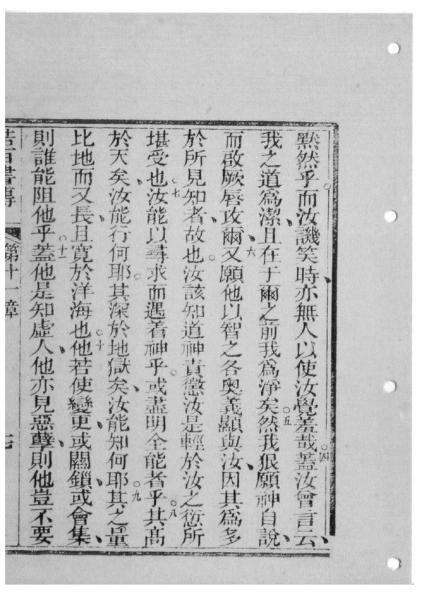 默然乎而汝譏笑時亦無人以使汝覺羞哉四蓋汝曾言云
我之道爲潔且在于爾之前我爲淨矣五然我狠願神自說
而啟厥唇攻爾六又願他以智之各奧義顯與汝因其爲多
於所見知者故也汝該知道神責懲汝是輕於汝之愆所
堪受也七汝能以尋求而遇着神乎或盡明全能者乎八其高
於天矣汝能行何耶其深於地獄矣汝能知何耶九其之量
比地而又長且寬於洋海也十他若使變更或關鎖或會集
則誰能阻他乎十一蓋他是知虛人他亦見惡孽則他豈不要
書傳 第十一章 七